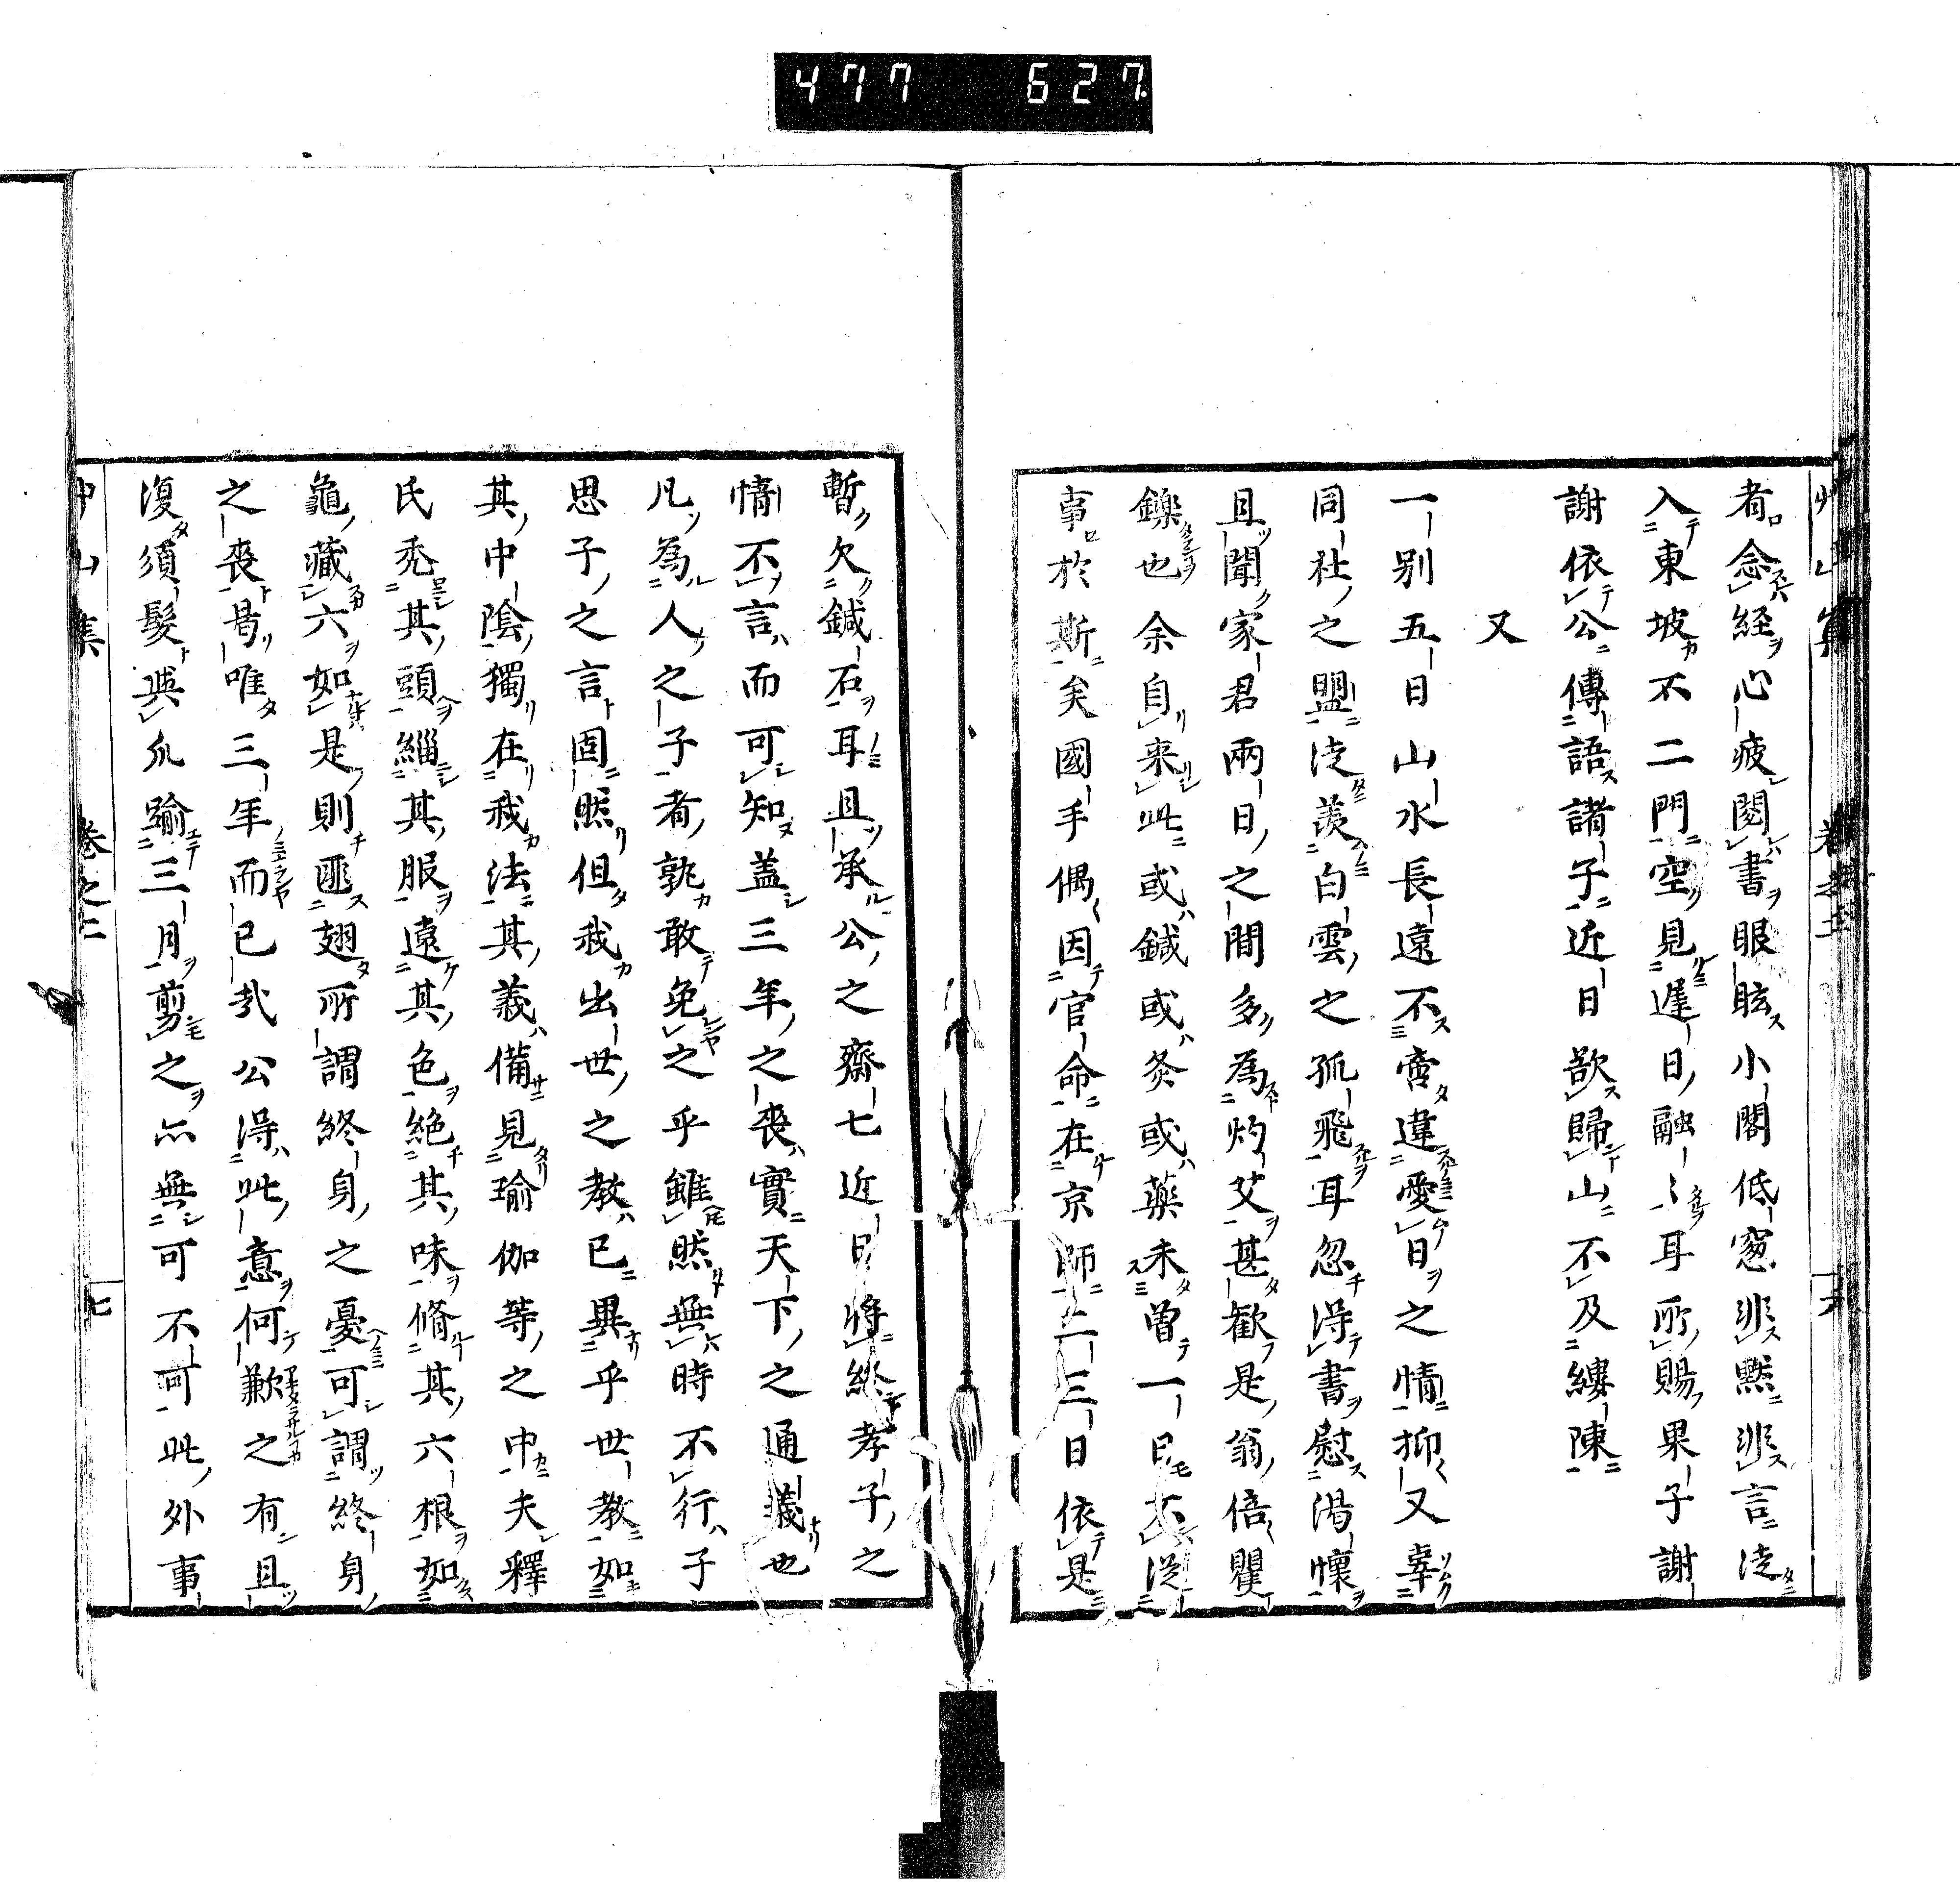 477 627
者念経心疲閱書眼眩小閣低窓非黙非言徒
入東坡不二門空見遅日融〻耳所賜果子謝
謝依公傳語諸子近日欲歸山不及縷陳
又
一別五日山水長遠不啻違愛日之情抑又辜
同社之盟徒羨白雲之孤飛耳忽得書慰渇懷
且聞家君兩日之間多為灼艾甚歓是翁倍矍
鑠也余自来此或鍼或灸或藥未曽一日不從
事於斯矣國手偶因官命在京師二三日依是
暫欠鍼石耳且承公之齋七近日將終孝子之
情不言而可知盖三年之喪實天下之通義也
凡為人之子者孰敢免之乎雖然無時不行子
思子之言固然但我出世之教已異乎世教如
其中陰獨在我法其義備見瑜伽等之中夫釋
氏禿其頭緇其服遠其色絶其味脩其六根如
龜藏六如是則匪翅所謂終身之憂可謂終身
之喪曷唯三年而已哉公得此意何歉之有且
復須髮與爪踰三月剪之亦無可不可此外事
艸山集 巻之二 七